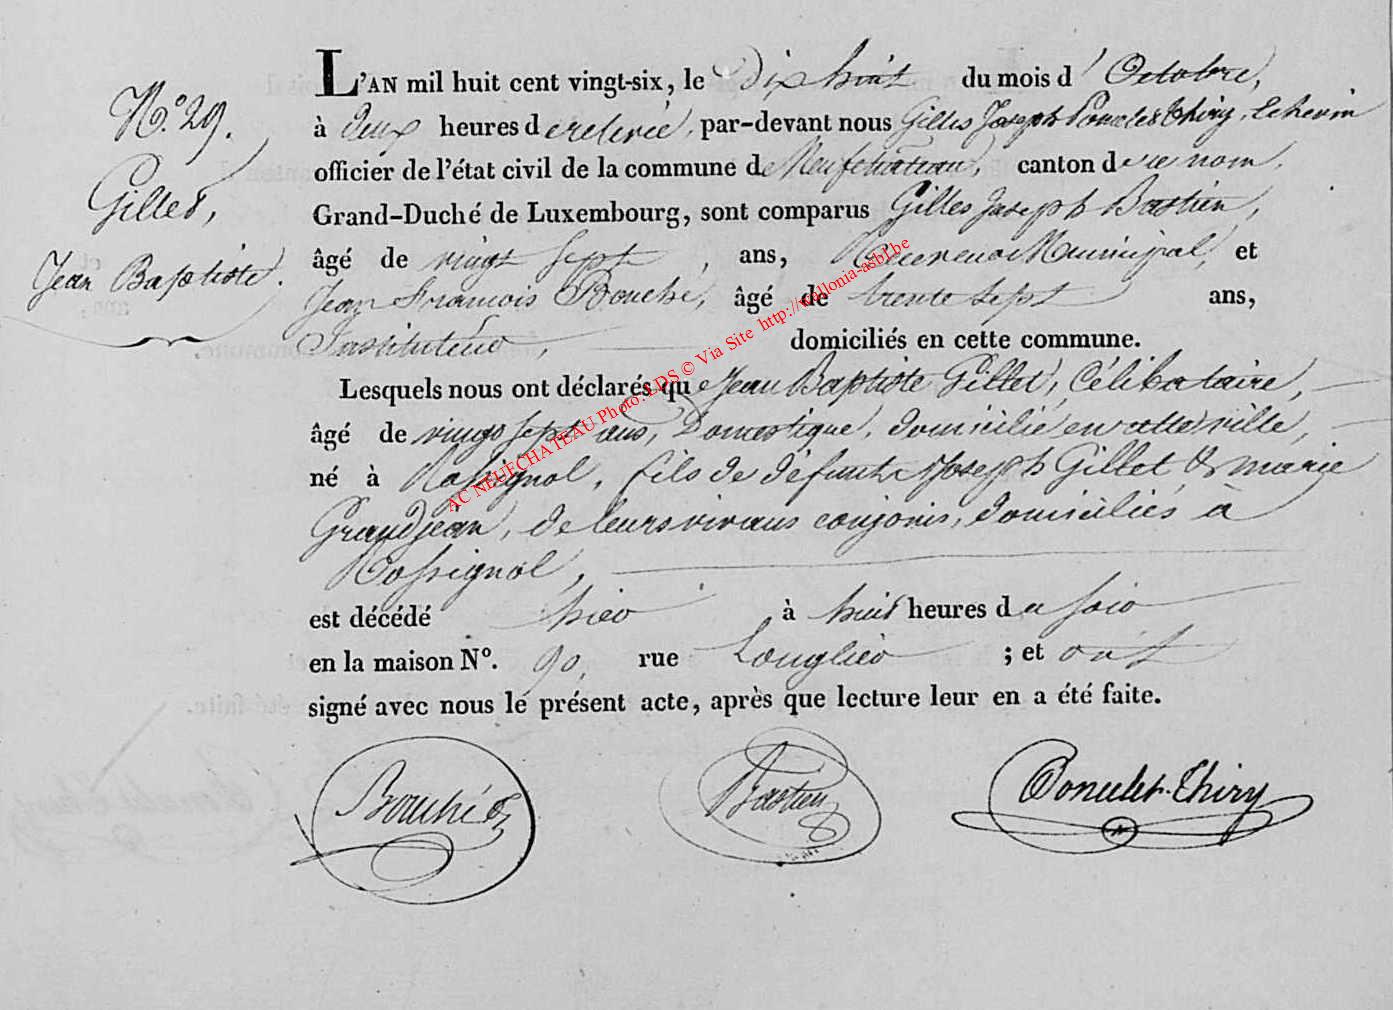 N.° 29.
Gillet,
Jean Baptiste.
L'AN mil huit cent vingt-six, le Dix huit du mois d'Octobre,
à deux heures de relevée, par-devant nous Gilles Joseph Poncelet Thiry, Echevin
officier de l'état civil de la commune de Neufchateau, canton de ce nom,
Grand-Duché de Luxembourg, sont comparus Gilles Joseph Bastien,
âgé de vingt sept ans, Receveur Municipal, et
Jean François Bouché, âgé de trente sept ans,
Instituteur, domiciliés en cette commune.
Lesquels nous ont déclarés que Jean Baptiste Gillet, Célibataire,
âgé de vingt sept ans, Domestique, domicilié en cette ville,
né à Rossignol, fils de défunts Joseph Gillet & Marie
Grandjean, de leurs vivans conjoins, domiciliés à
Rossignol,
est décédé hier à huit heures du soir
en la maison N°. 90, rue Longlier ; et ont
signé avec nous le présent acte, après que lecture leur en a été faite.
Bouché
Bastien
Poncelet-Thiry
AC NEUFCHATEAU Photo: LDS © Via Site http://wallonia-asbl.be